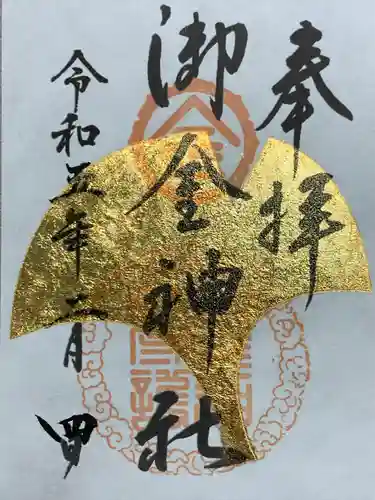 奉拝
御金神社
令和五年二月四